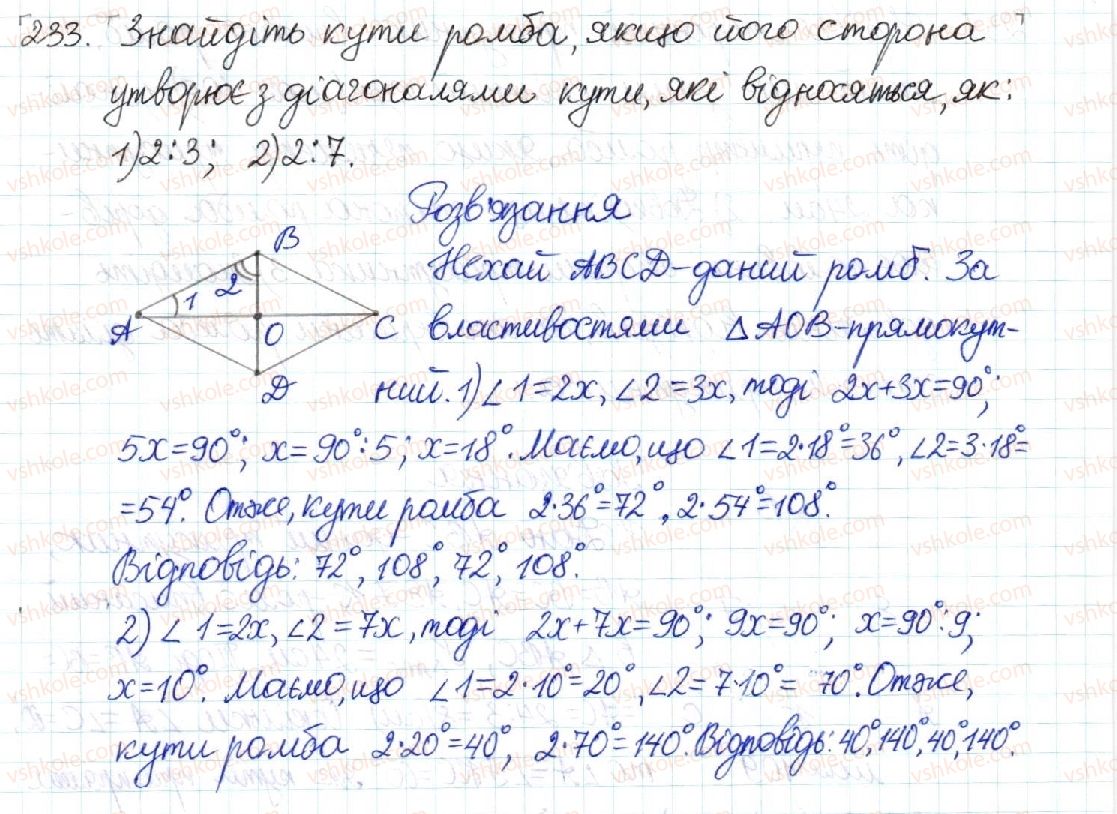 233. Знайдіть кути ромба, якщо його сторона
утворює з діагоналями кути, які відносяться, як:
1) 2:3; 2) 2:7.
Розв'язання
B
2
1
A
O
C
D
Нехай ABCD-даний ромб. За
властивостями △AOB-прямокут-
ний. 1) ∠1=2x, ∠2=3x, тоді 2x+3x=90°;
5x=90°; x=90°:5; x=18°. Маємо, що ∠1=2·18°=36°, ∠2=3·18°=
=54°. Отже, кути ромба 2·36°=72°, 2·54°=108°.
Відповідь: 72°, 108°, 72°, 108°.
2) ∠1=2x, ∠2=7x, тоді 2x+7x=90°; 9x=90°; x=90°:9;
x=10°. Маємо, що ∠1=2·10°=20°, ∠2=7·10°= 70°. Отже,
кути ромба 2·20°=40°, 2·70°=140°. Відповідь: 40°, 140°, 40°, 140°.